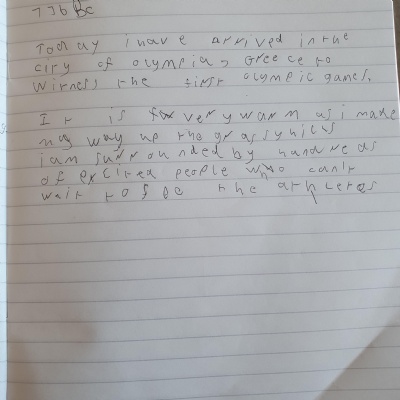 776 BC
Today i have arrived in the
city of olympia, Greece to
witness the first olympic games.
It is very warm as i make
my way up the grassy hills
i am surrounded by hundreds
of excited people who can't
wait to the athletes